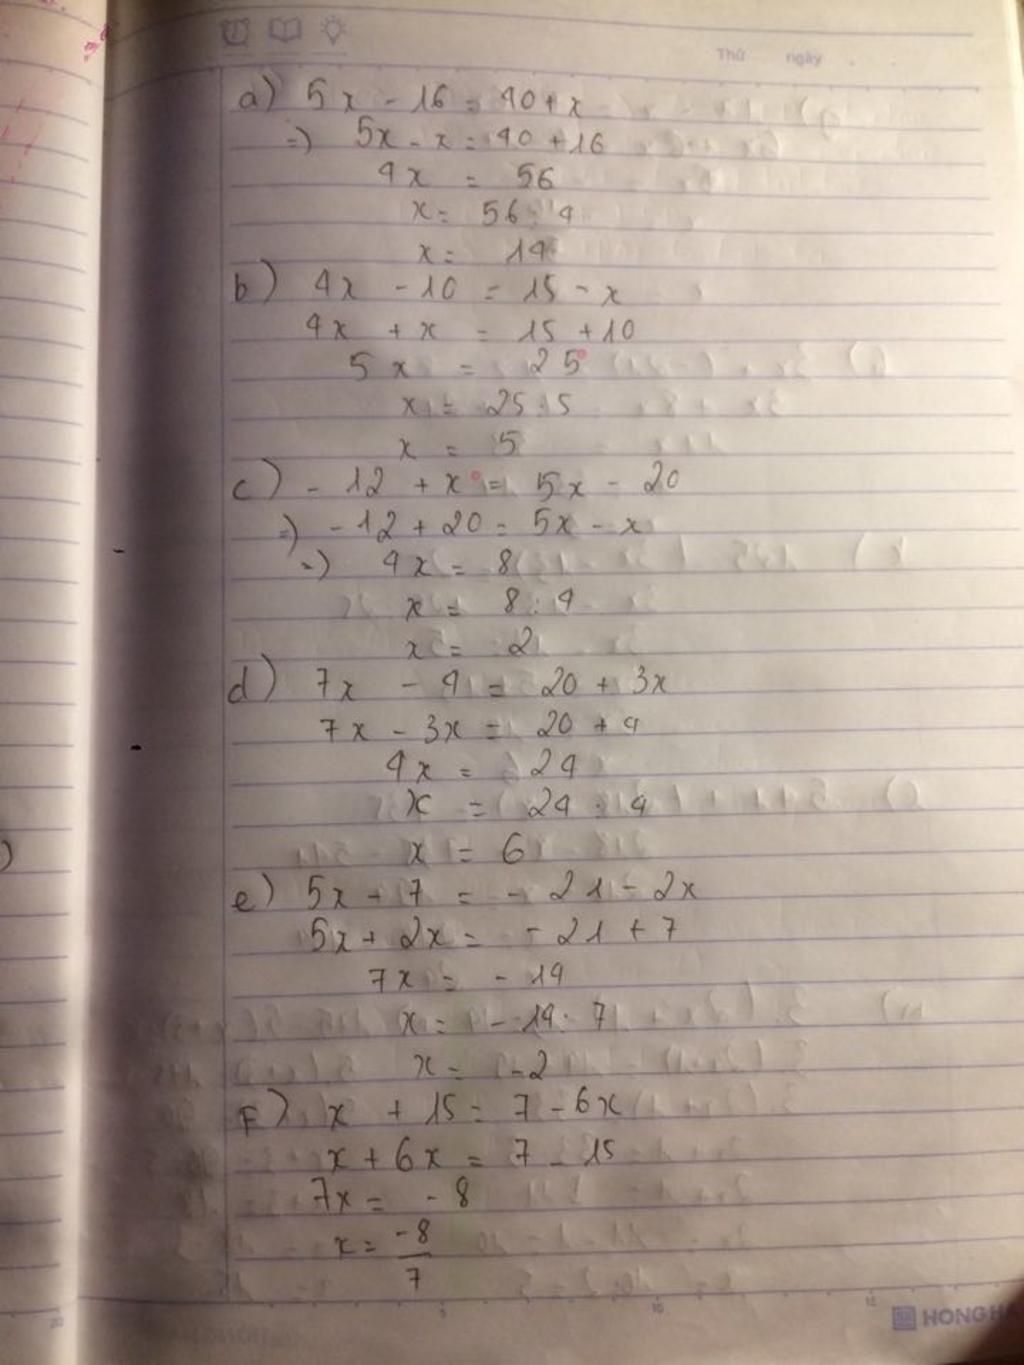 Thứ ngày
a) 5x - 16 = 40 + x
=) 5x - x = 40 + 16
4x = 56
x = 56 : 4
x = 14
b) 4x - 10 = 15 - x
4x + x = 15 + 10
5x = 25
x = 25 : 5
x = 5
c) - 12 + x = 5x - 20
=) - 12 + 20 = 5x - x
=) 4x = 8
x = 8 : 4
x = 2
d) 7x - 4 = 20 + 3x
7x - 3x = 20 + 4
4x = 24
x = 24 : 4
x = 6
e) 5x - 7 = - 21 - 2x
5x + 2x = - 21 + 7
7x = - 14
x = - 14 : 7
x = -2
F) x + 15 = 7 - 6x
x + 6x = 7 - 15
7x = - 8
x = -8
7
5 10 15
HONG H